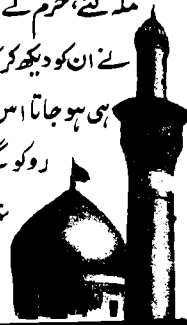 مکہ گئے، حرم کے
نے ان کو دیکھ کر
ہی ہو جاتا اس
روکو